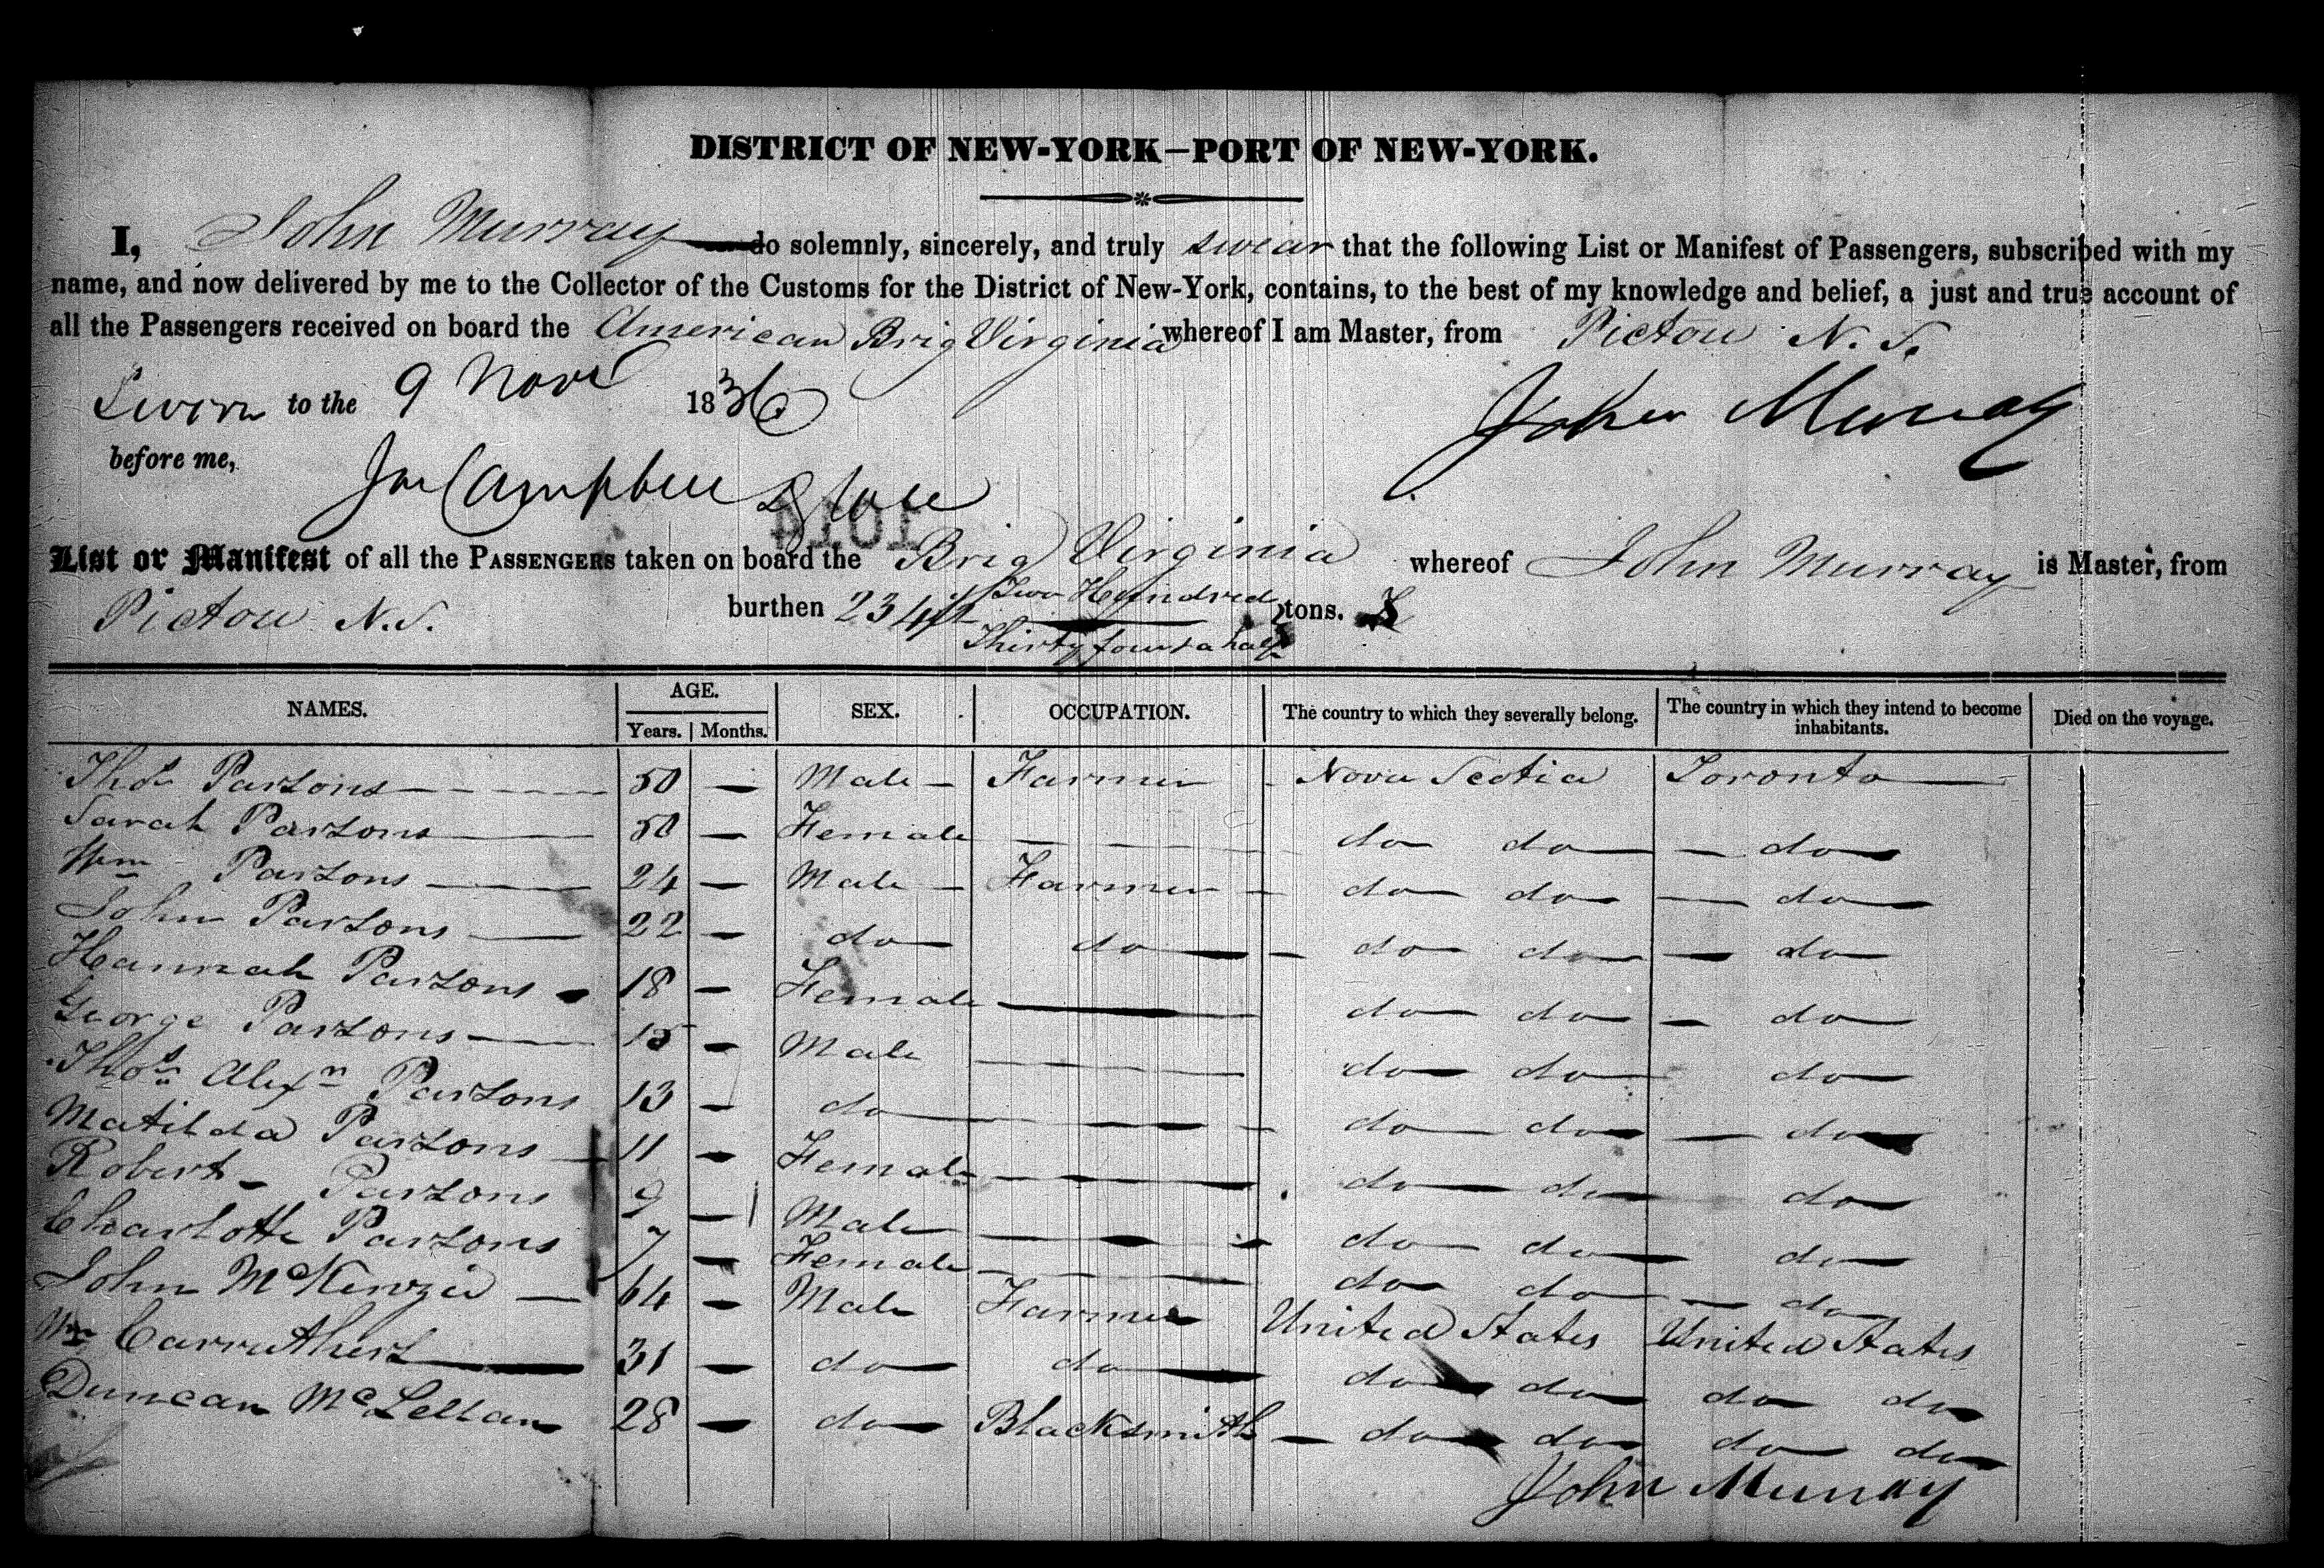 DISTRICT OF NEW-YORK—PORT OF NEW-YORK.
I, John Murray do solemnly, sincerely, and truly swear that the following List or Manifest of Passengers, subscribed with my
name, and now delivered by me to the Collector of the Customs for the District of New-York, contains, to the best of my knowledge and belief, a just and true account of
all the Passengers received on board the American Brig Virginia whereof I am Master, from Pictou N. S.
Sworn to the 9 Novr 1836
John Murray
before me,
Campbell
1014
List or Manifest of all the PASSENGERS taken on board the Brig Virginia whereof John Murray is Master, from
Pictou N.S. burthen 234½ Two Hundred tons.
Thirty four & a half
NAMES. AGE. SEX. OCCUPATION. The country to which they severally belong. The country in which they intend to become inhabitants. Died on the voyage.
Years. Months.
Thos Parsons 50 — Male — Farmer Nova Scotia Toronto
Sarah Parsons 50 — Female do do do
Wm Parsons 24 — Male — Farmer — do do do
John Parsons 22 — do do do do do
Hannah Parsons 18 — Female do do do
George Parsons 15 — Male do do do
Thos Alexr Parsons 13 — do do do do
Matilda Parsons 11 — Female do do do
Robert Parsons 9 — Male do do do
Charlotte Parsons 7 — Female do do do
John McKenzie 64 — Male Farmer United States United States
Wm Carruthers 31 — do do do do do do
Duncan McLellan 28 — do Blacksmith do do do do
John Murray